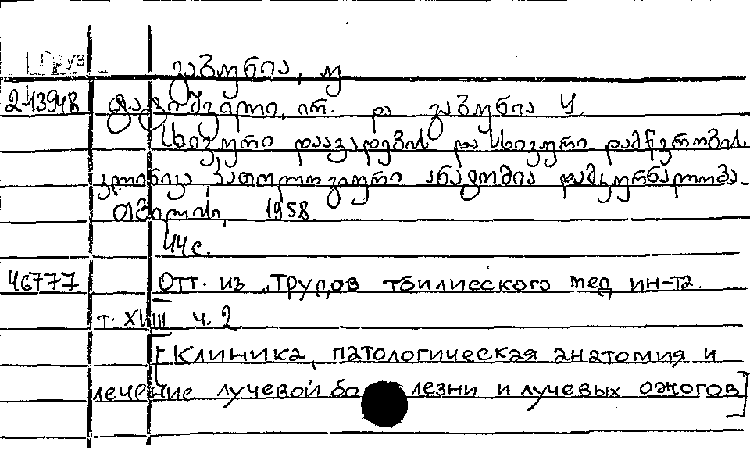 Груз
გაბუნია, უ
243948 ტატიშვილი, ირ. და გაბუნია უ.
სხივური დაავადების და სხივური დამწვრობის
კლინიკა პათოლოგიური ანატომია და მკურნალობა.
თბილისი, 1958.
44 с.
46777 Отт. из „Трудов тбилисского мед ин-та.
т. XVIII ч. 2
[Клиника, патологическая анатомия и
лечение лучевой болезни и лучевых ожогов]